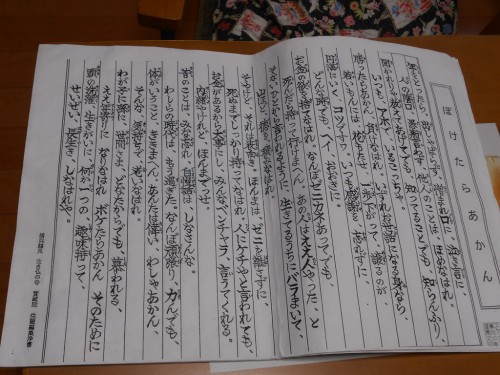 ぼけたらあかん
年をとったら 出しゃばらず 憎まれ口に 泣き言に
人の陰口 愚痴言わず 他人のことは ほめなはれ
聞かれりゃ 教えてあげてでも 知ってることでも 知らんふり
いつも アホで いるこっちゃ
勝ったらあかん 負けなはれ いずれお世話になる身なら
若いもんには 花もたせ 一歩下がって 譲るのが
円満にいく コツですわ いつも感謝を 忘れずに
どんな時でも へイ おおきに
お金の欲を 捨てなはれ なんぼゼニカネ あってでも
死んだら 持って行けまへん あの人は ええ人やった と
そないに 人から言われるように 生きてるうちに バラまいて
山ほど 徳を 積みなはれ
そやけど それは表向き ほんまは ゼニを 離さずに
死ぬまで しっかり 持ってなはれ 人にケチやと 言われても
お金があるから 大事にし みんなベンチャラ 言うてくれる
内緒やけれど ほんまでっせ
昔のことは みな忘れ 自慢話は しなはんな
わしらの時代は もう過ぎた なんぼ頑張り 力んでも
体がいうこと ききまへん あんたは偉い わしゃあかん
そんな 気持ちで 老いなはれ
わが子に 孫に 世間さま どなたからでも 慕われる
ええ年寄りに なりなはれ ボケたらあかん そのために
頭の洗濯 生きがいに 何か一つの 趣味持って
せいぜい 長生き しなはれや